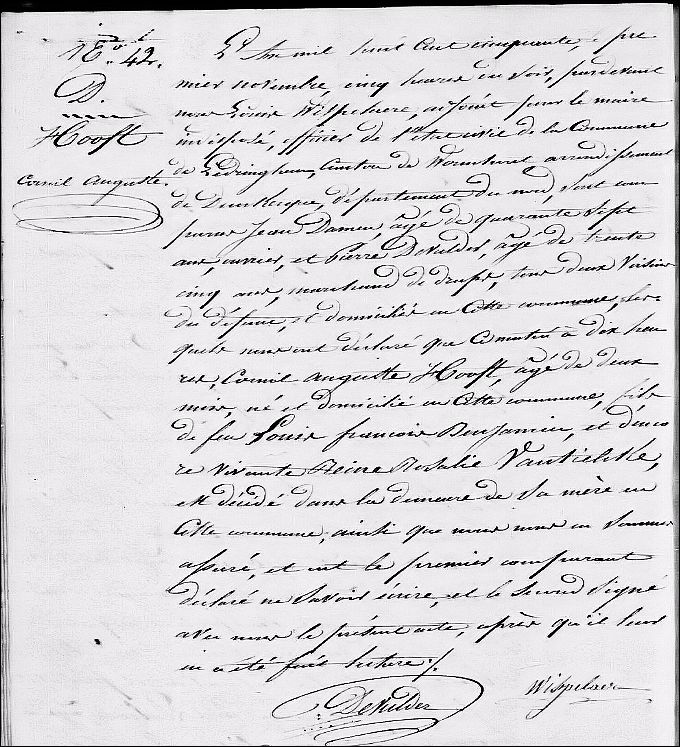 N° 42.
D.
Hooft
Cornil Auguste.
L'An mil huit cent cinquante, le pre
mier novembre, cinq heures du soir, pardevant
nous Louis Wispelaere, adjoint pour le maire
indisposé, officier de l'état civil de la Commune
de Ledringhem, Canton de Wormhout arrondissement
de Dunkerque, département du nord, sont com
parus Jean Damen, âgé de quarante sept
ans, ouvrier, et Pierre DeVulder, âgé de trente
cinq ans, marchand de draps, tous deux Voisins
du défunt, et domiciliés en Cette commune, les
quels nous ont déclaré que Ce matin à dix heu
res, Cornil Auguste Hooft, âgé de deux
mois, né et domicilié en Cette commune, fils
de feu Louis françois Benjamin, et d'enco
re vivante Reine Rosalie
est décédé dans la demeure de Sa mère en
Cette commune, ainsi que nous nous en Sommes
assuré, et ont le premier comparant
déclaré ne Savoir écrire, et le Second Signé
avec nous le présent acte, après qu'il leur
en a été fait lecture ./.
DeVulder
Wispelaere